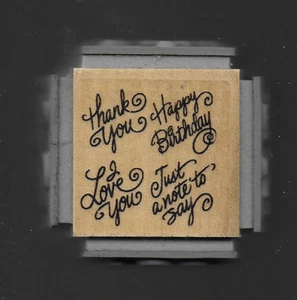 Thank
You
Happy
Birthday
I
Love
You
Just
a note to
say